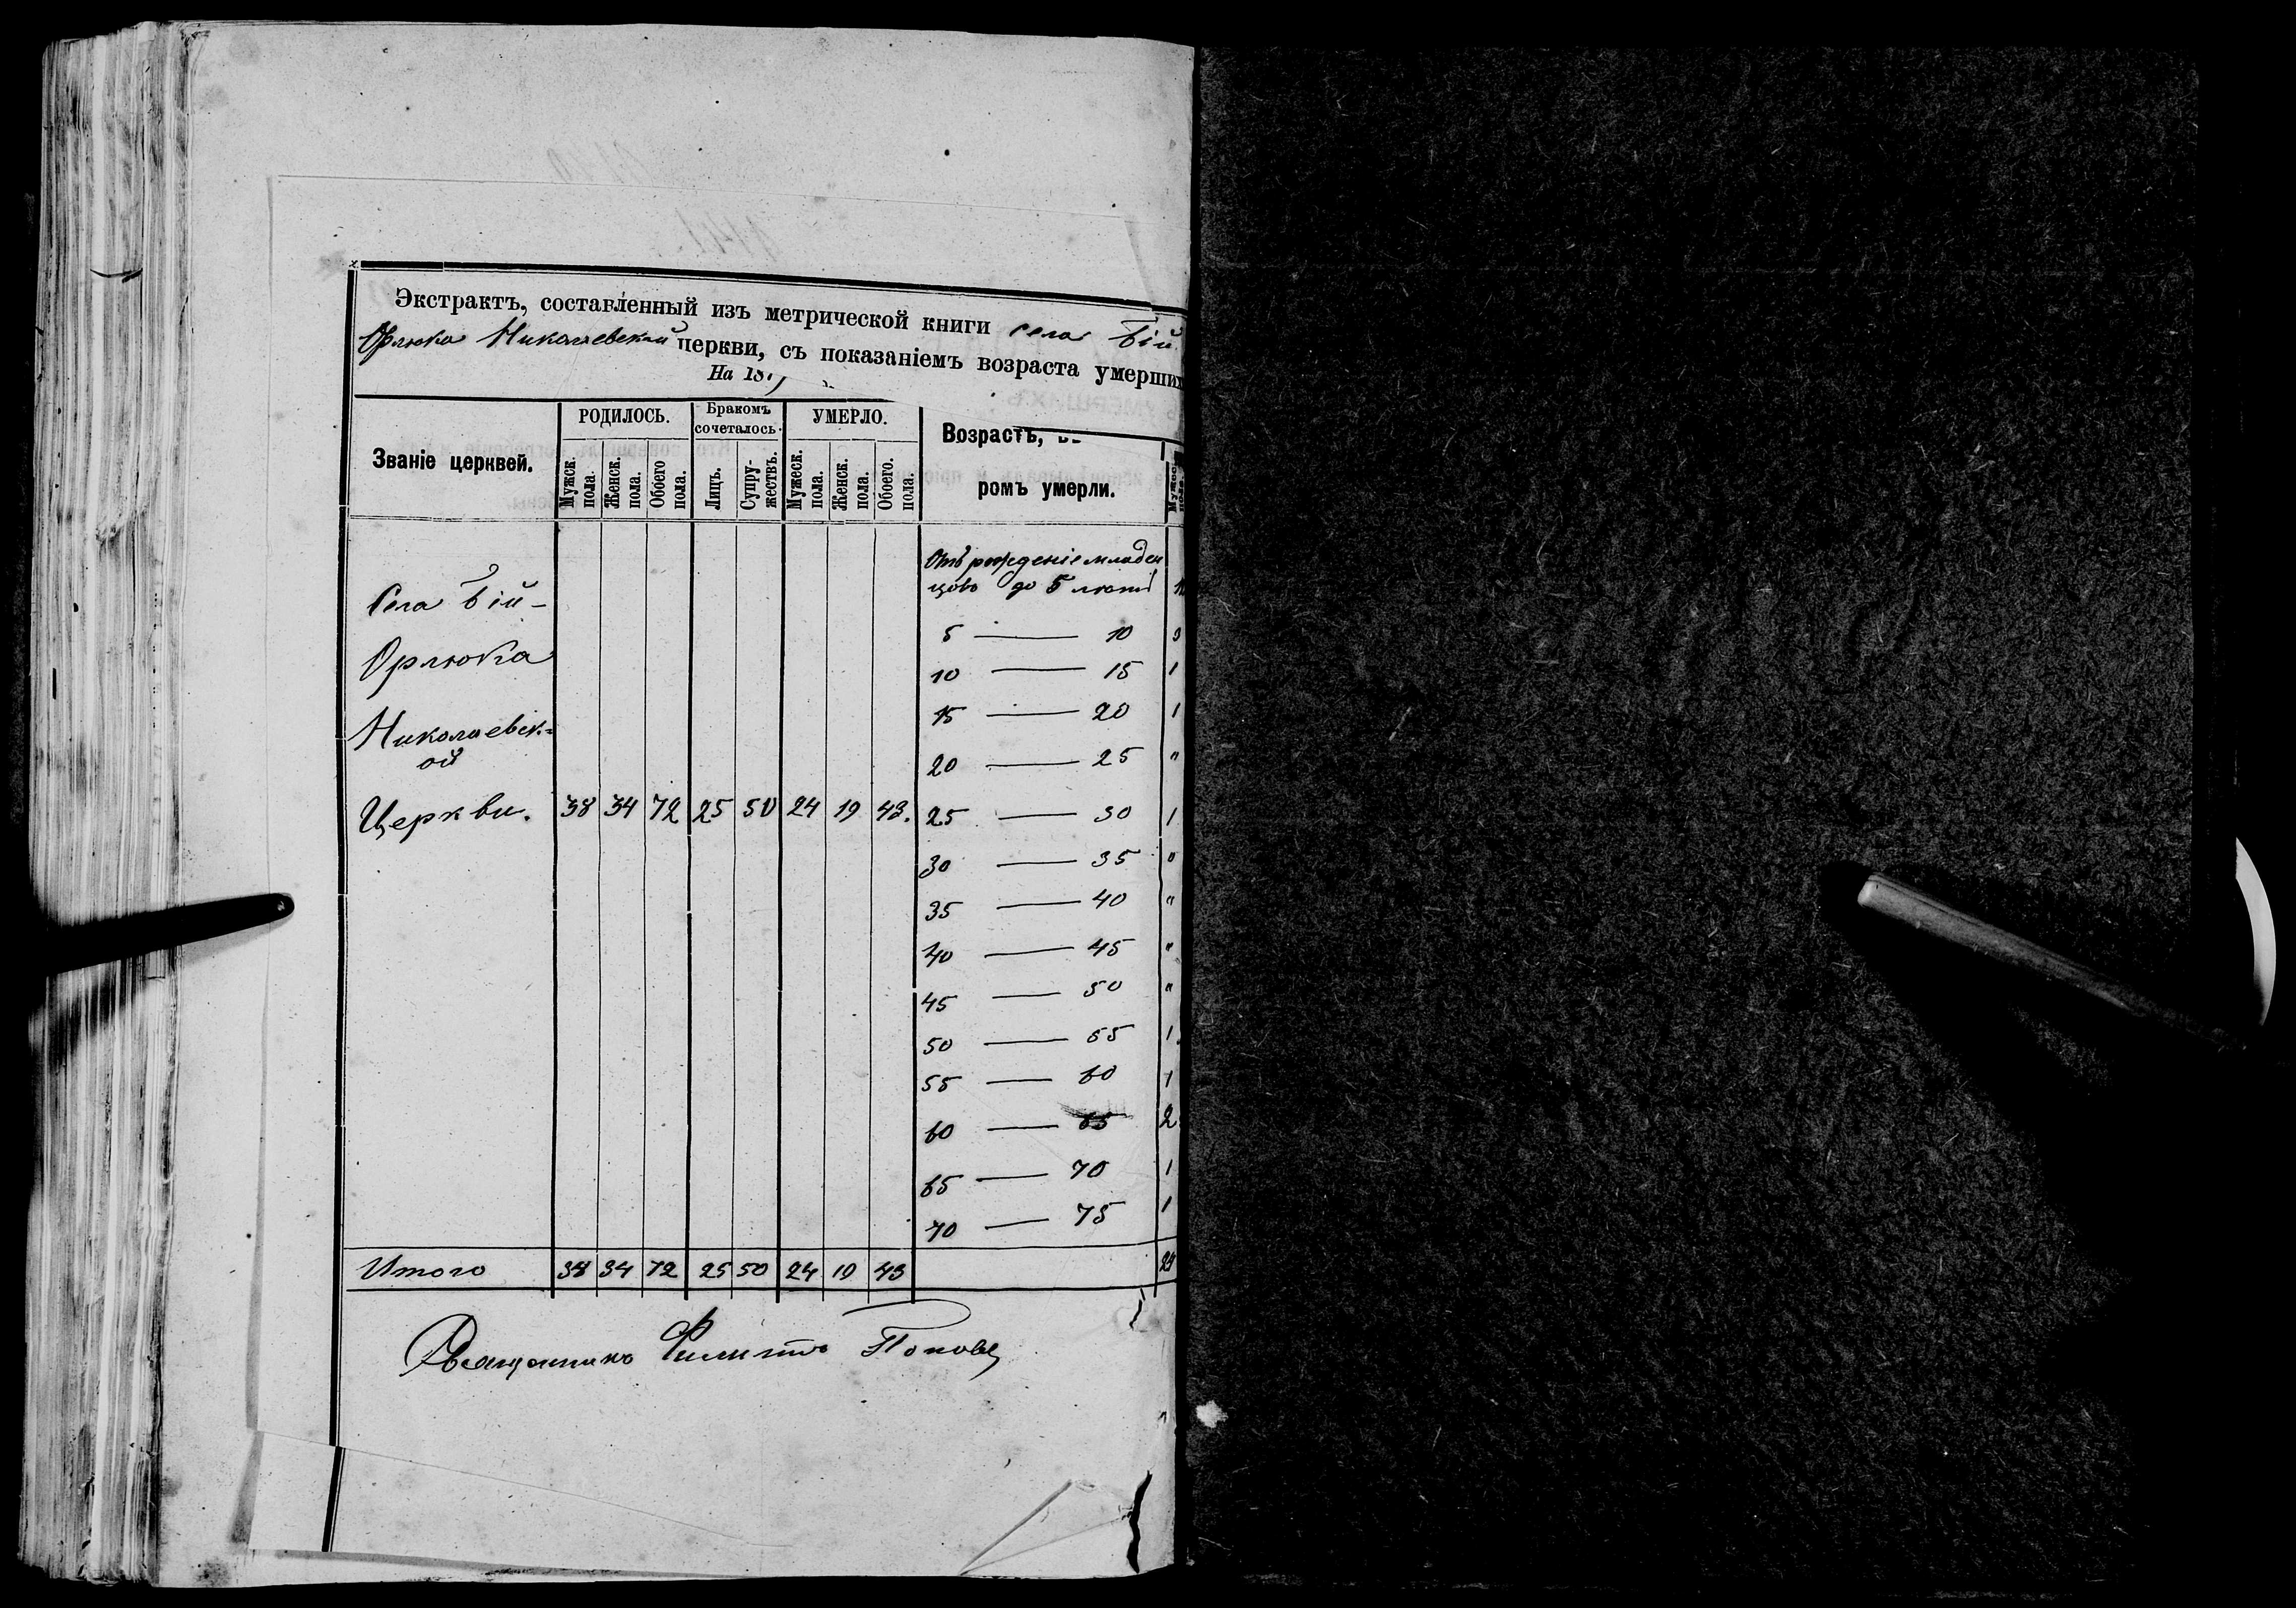 Экстрактъ, составленный изъ метрической книги села Бій
Орлюка Николаевской церкви, съ показаніемъ возраста умерших
На 187
Званіе церквей.
РОДИЛОСЬ.
Бракомъ сочеталось.
УМЕРЛО.
Возрастъ,
ромъ умерли.
Мужск. пола.
Женск. пола.
Обоего пола.
Лицъ.
Супружествъ.
Мужеск. пола.
Женск. пола.
Обоего. пола.
Мужеск. пола
Отъ рожденіе младен
цовъ до 5 лѣтъ
Села Бій-
5 — 10 3
Орлюка
10 — 15 1
15 — 20 1
Николаевск-
ой
20 — 25 "
Церкви. 38 34 72 25 50 24 19 43. 25 — 30 1
30 — 35 "
35 — 40 "
40 — 45 "
45 — 50 "
50 — 55 1
55 — 60 1
60 — 65 2
65 — 70 1
70 — 75 1
Итого 38 34 72 25 50 24 19 43 24
Священникъ Филиппъ Поповъ